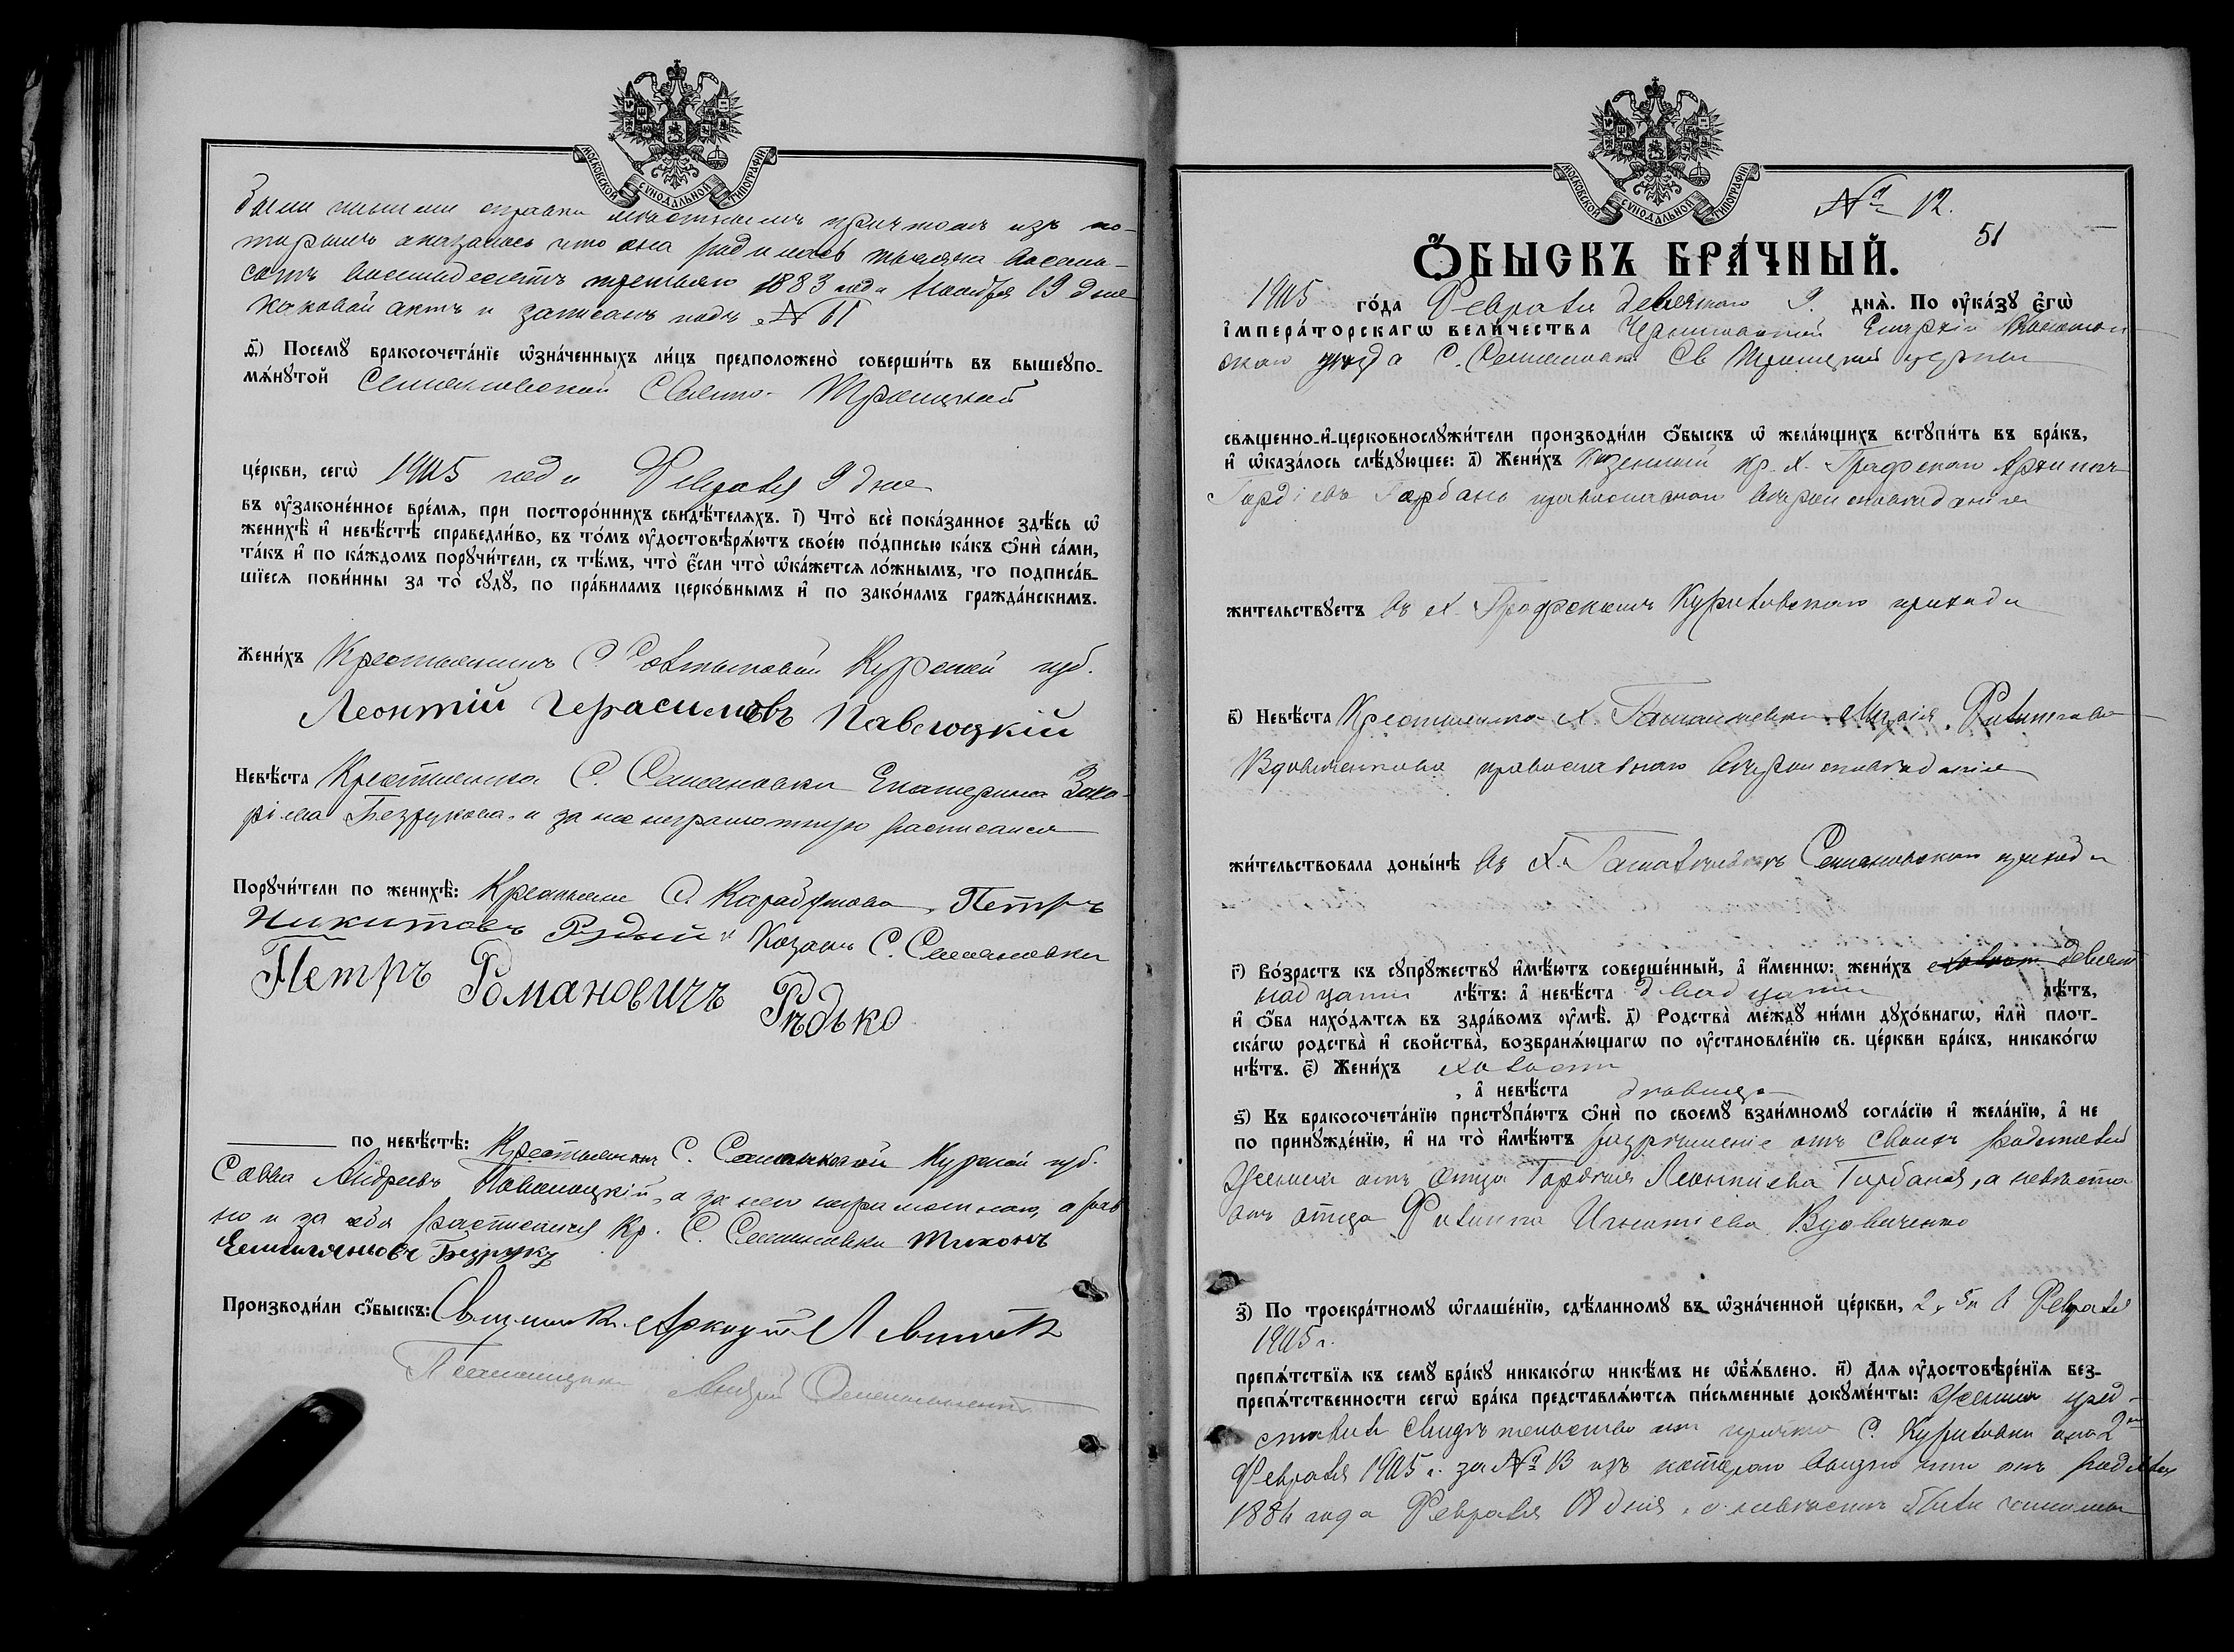 МОСКОВСКОЙ СѴНОДАЛЬНОЙ ТИПОГРАФІИ
были справки причтомъ изъ ко-
торыхъ оказалось что она родилась тысяча восемь-
сотъ восемьдесятъ третьяго 1883 года Ноября 19 дня
каковый актъ и записанъ подъ № 61
д҃) Посемꙋ бракосочета́нїе ѡ҆зна́ченныхъ ли́цъ предположено̀ соверши́ть въ вышеꙋпо-
мѧ́нꙋтой Семеновской Свято-Троицкой
це́ркви, сегѡ̀ 1905 года Февраля 9 дня
въ ᲂу҆законе́нное вре́мѧ, при посторо́ннихъ свидѣ́телѧхъ. і҃) Что̀ всѐ пока́занное здѣ́сь ѡ҆
женихѣ̀ и҆ невѣ́стѣ справедли́во, въ то́мъ ᲂу҆достовѣрѧ́ютъ свое́ю по́дписью ка́къ ѻ҆нѝ са́ми,
та́къ и҆ по ка́ждомъ порꙋчи́тели, съ тѣ́мъ, что̀ є҆́сли что̀ ѡ҆ка́жетсѧ ло́жнымъ, то подписа́в-
шїесѧ пови́нны за то̀ сꙋдꙋ̀, по пра́виламъ церко́внымъ и҆ по зако́намъ гражда́нскимъ.
Жени́хъ Крестьянинъ С. Курской губ.
Леонтій Герасимовъ Павлоцкій
Невѣ́ста Крестьянка С. Семеновки Екатерина Заха-
ріева Безрукова, и за нее неграмотную росписался
Порꙋчи́тели по женихѣ̀: Крестьяне С. Карабутова Петръ
Никитовъ Рудый и Козакъ С. Семеновки
Петръ Романовичъ Рѣдько
по невѣ́стѣ: Крестьянин С. Курской губ.
Савва Андреевъ Поволоцкій, а за него неграмотного, а рав
но и за себя росписался Кр. С. Семеновки Тихонъ
Емельяновъ Безрукъ
Производи́ли ѻ҆́быскъ: Священникъ Аркадій Левицкій
Псаломщикъ Андрей
МОСКОВСКОЙ СѴНОДАЛЬНОЙ ТИПОГРАФІИ
№ 12.
51
Ѻ҆́БЫСКЪ БРА́ЧНЫЙ.
1905 го́да Февраля девятаго 9. днѧ̀. По ᲂу҆ка́зꙋ є҆гѡ̀
і҆мпера́торскагѡ вели́чества Черниговской Епархіи Конотоп-
скаго уѣзда С. Семеновки Св Троицкой церкви
свѧщенно-и҆-церковнослꙋжи́тели производи́ли ѻ҆́быскъ ѡ҆ жела́ющихъ встꙋпи́ть въ бра́къ,
и҆ ѡ҆каза́лось слѣ́дꙋющее: а҃) Жени́хъ Казенный кр. х. Графскаго Архипъ
Гордіевъ Горбань православнаго вѣроисповѣданія
жи́тельствꙋетъ въ х. Графскомъ Куриловскаго прихода
в҃) Невѣ́ста Крестьянка х. Марія Филиппова
Вдовиченкова православнаго вѣроисповѣданія
жи́тельствовала доны́нѣ въ х. Семеновскаго прихода
г҃) Во́зрастъ къ сꙋпрꙋ́жествꙋ и҆мѣ́ютъ соверше́нный, а҆ и҆́меннѡ: жени́хъ холостъ девят
надцати лѣ́тъ: а҆ невѣ́ста двадцати лѣ́тъ,
и҆ ѻ҆́ба нахо́дѧтсѧ въ здра́вомъ ᲂу҆мѣ̀. д҃) Родства̀ мє́ждꙋ ни́ми дꙋхо́внагѡ, и҆лѝ плот-
ска́гѡ родства̀ и҆ свойства̀, возбранѧ́ющагѡ по ᲂу҆становле́нїю св. це́ркви бра́къ, никако́гѡ
нѣ́тъ. є҃) Жени́хъ холостъ
, а҆ невѣ́ста дѣвица
ѕ҃) Къ бракосочета́нїю пристꙋпа́ютъ ѻ҆нѝ по своемꙋ̀ взаи́мномꙋ согла́сїю и҆ жела́нїю, а҆ не
по принꙋжде́нїю, и҆ на то̀ и҆мѣ́ютъ разрѣшеніе отъ своихъ родителей
Женихъ отъ отца Гордѣя Леонтіева Горбаня, а невѣста
отъ отца Филиппа Игнатіева Вдовиченко
з҃) По троекра́тномꙋ ѡ҆глаше́нїю, сдѣ́ланномꙋ въ ѡ҆зна́ченной це́ркви, 2, 5 и 6 Февраля
1905 г.
препѧ́тствїѧ къ семꙋ̀ бра́кꙋ никако́гѡ никѣ́мъ не ѡ҆б̾ѧ́влено. и҃) Длѧ ᲂу҆достовѣре́нїѧ без-
препѧ́тственности сегѡ̀ бра́ка представлѧ́ютсѧ пи́сьменные докꙋме́нты: Женихъ пред-
ставилъ свидѣтельство отъ причта С. Куриловки отъ 2го
Февраля 1905 г. за № 13 изъ котораго видно что онъ родился
1886 года Февраля 18 дня, о невѣстѣ были